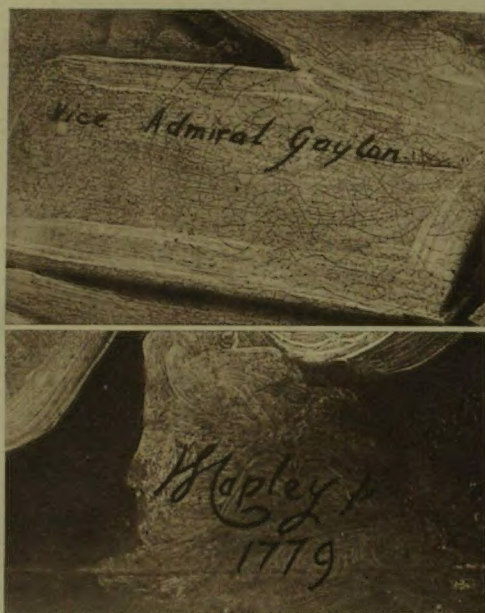 Vice Admiral Gayton
JSCopley p
1779